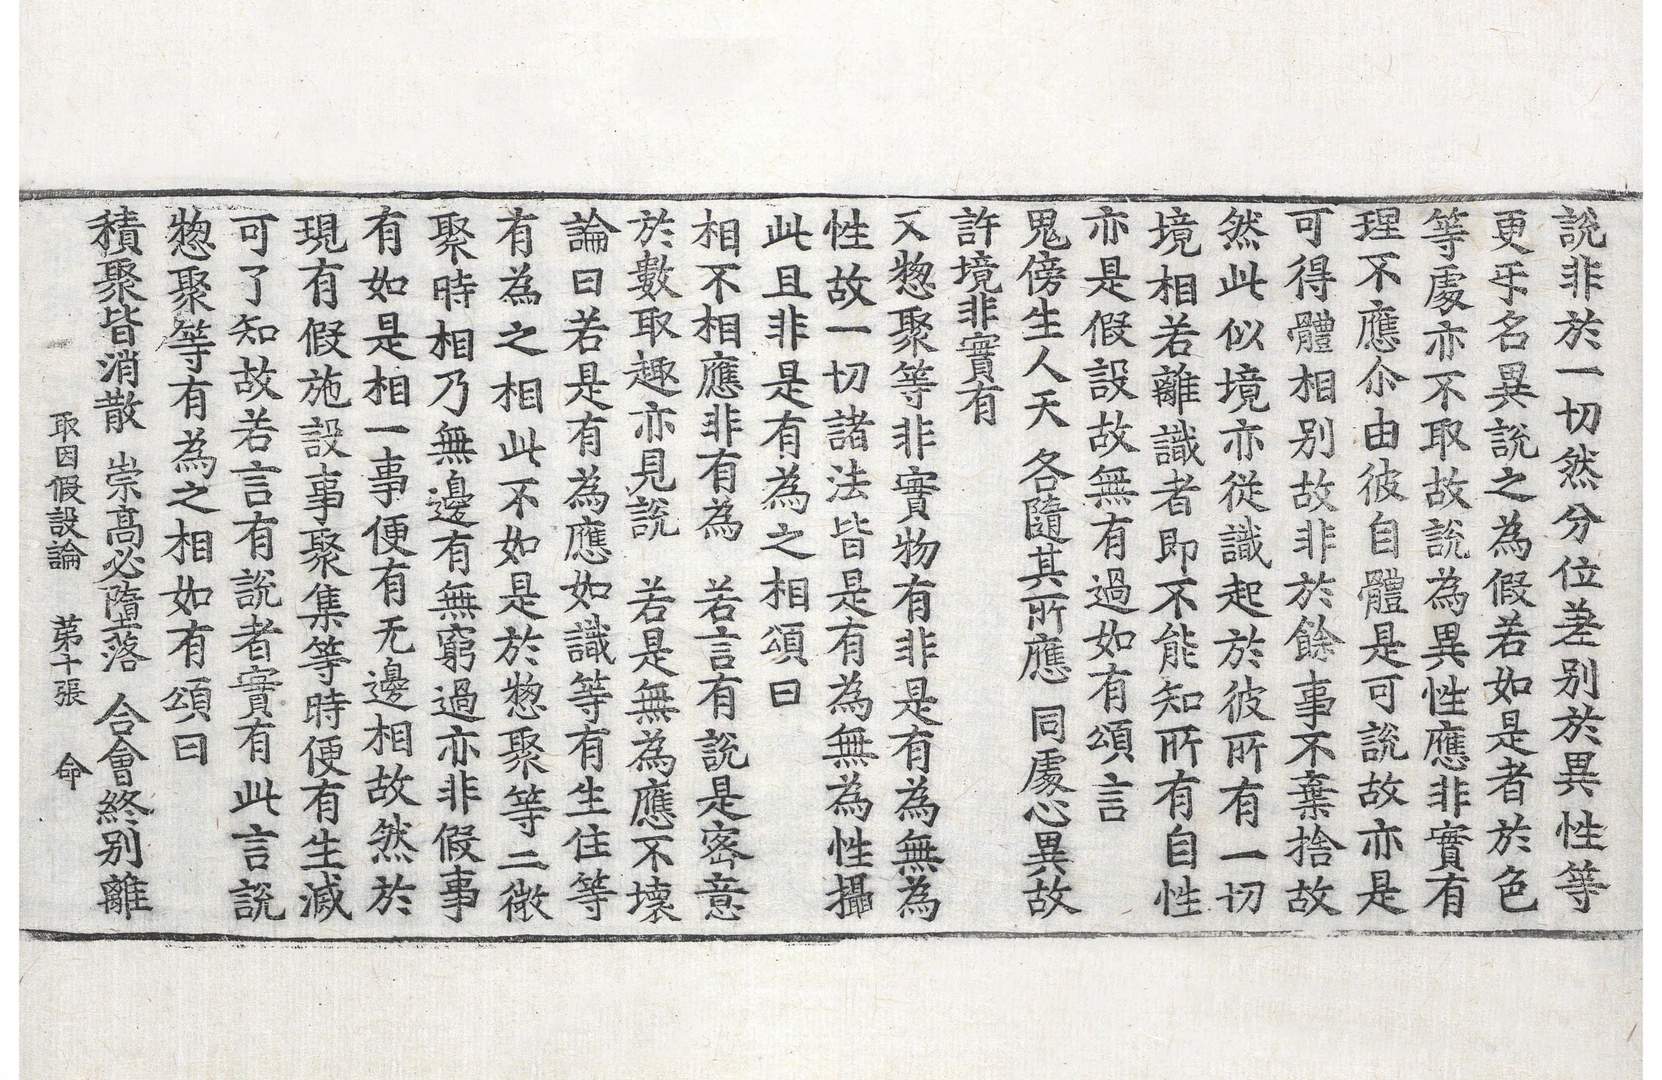 說非於一切然分位差別於異性等
更乎名異說之為假若如是者於色
等處亦不取故說為異性應非實有
理不應尒由彼自體是可說故亦是
可得體相別故非於餘事不棄捨故
然此似境亦從識起於彼所有一切
境相若離識者即不能知所有自性
亦是假設故無有過如有頌言
鬼傍生人天 各隨其所應 同處心異故
許境非實有
又惣聚等非實物有非是有為無為
性故一切諸法皆是有為無為性攝
此且非是有為之相頌曰
相不相應非有為 若言有說是密意
於數取趣亦見說 若是無為應不壞
論曰若是有為應如識等有生住等
有為之相此不如是於惣聚等二微
聚時相乃無邊有無窮過亦非假事
有如是相一事便有无邊相故然於
現有假施設事聚集等時便有生滅
可了知故若言有說者實有此言說
惣聚等有為之相如有頌曰
積聚皆消散 崇高必墮落 合會終別離
取因假設論 第十張 命